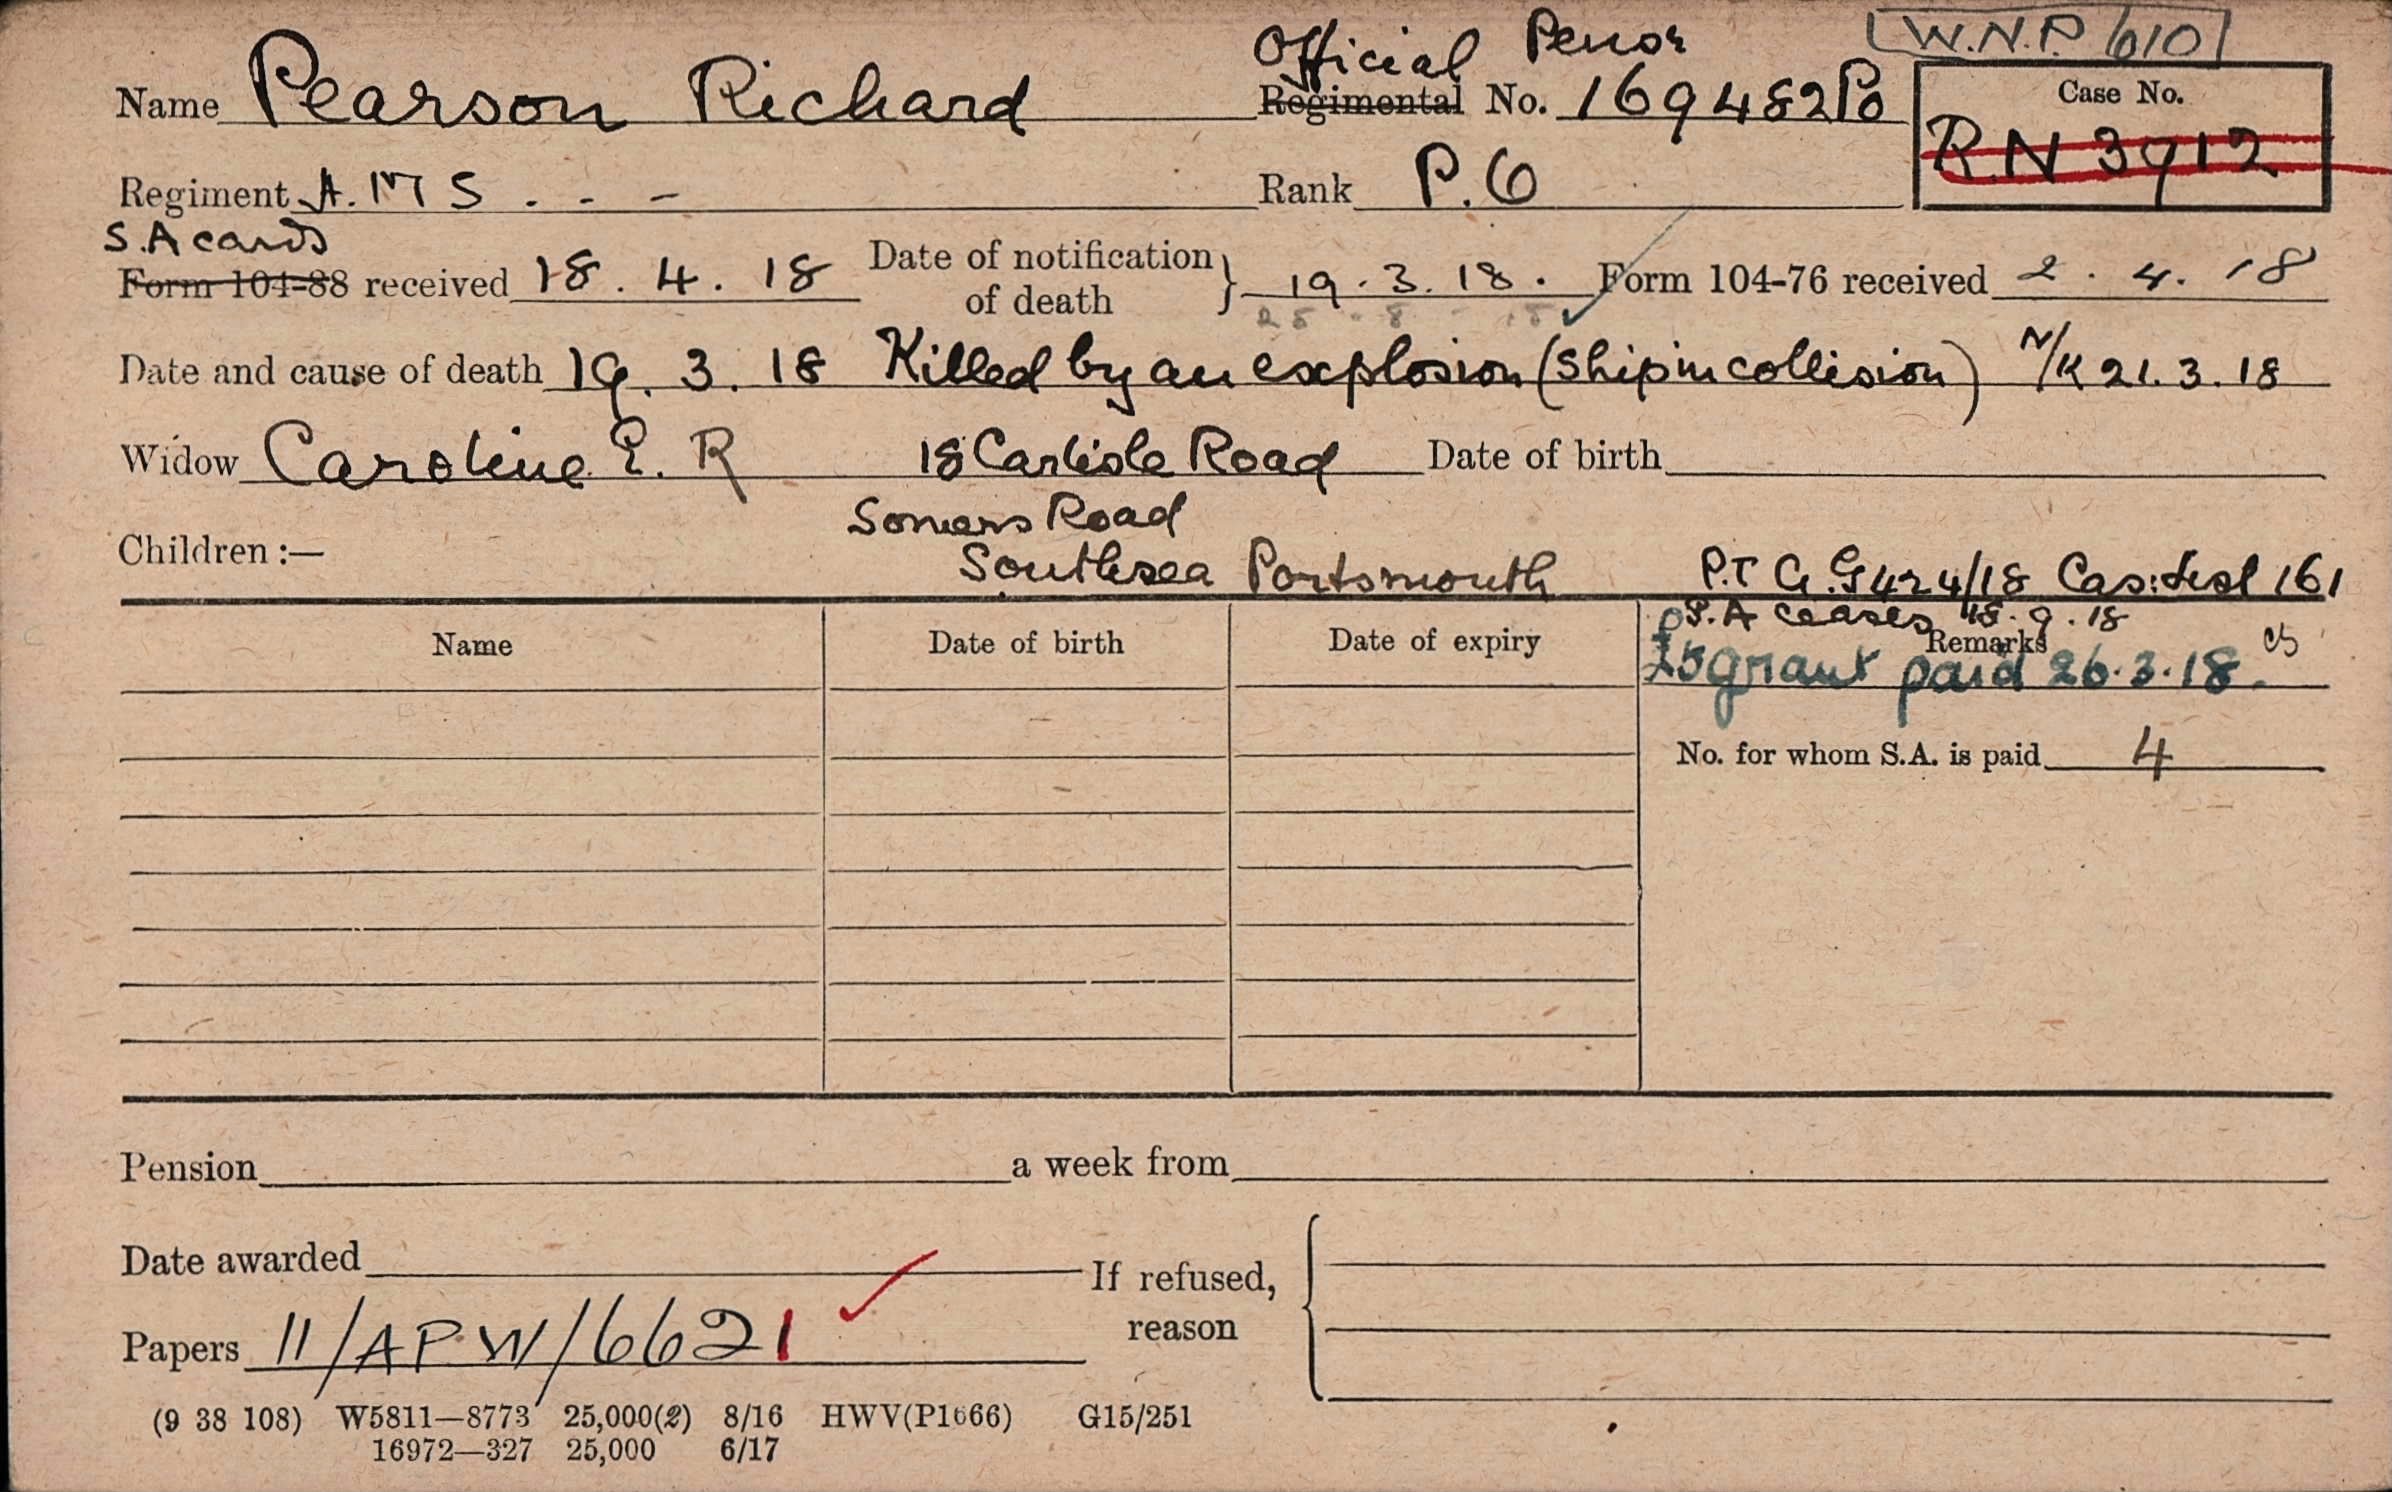 Official Pensr W.N.P. 610
Name Pearson Richard Regimental No. 169482Po Case No.
R.N 3912
Regiment H.M S . - - Rank P.O
S.A cards
Form 104-88 received 18 . 4 . 18 Date of notification of death } 19 . 3 . 18 . Form 104-76 received 2 . 4 . 18
Date and cause of death 19 . 3 . 18 Killed by an explosion (Ship in collision) N/K 21 . 3 . 18
Widow Caroline E. R 18 Carlisle Road Date of birth
Somers Road
Children :— Southsea Portsmouth P.T G. G424/18 Cas: List 161
S.A ceases 18 . 9 . 18
Name Date of birth Date of expiry Remarks
£5 grant paid 26.3.18.
No. for whom S.A. is paid 4
Pension a week from
Date awarded If refused, reason
Papers 11/APW/6621
(9 38 108) W5811—8773 25,000(2) 8/16 HWV(P1666) G15/251
16972—327 25,000 6/17